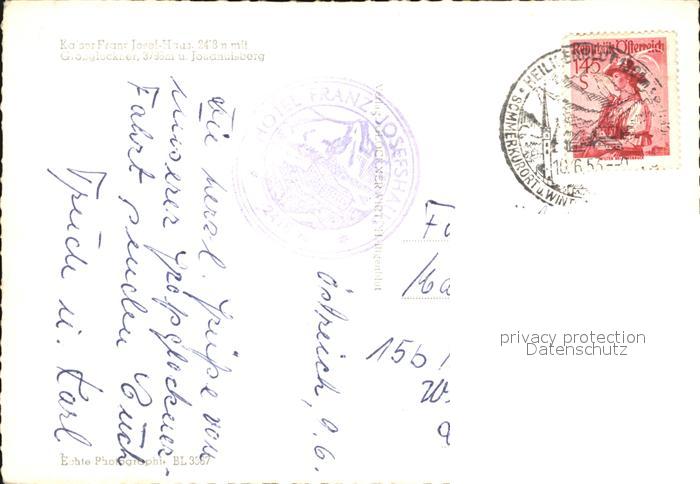 Kaiser Franz Josef-Haus, 2418 m mit
Großglockner, 3798m u. Johannisberg
HOTEL FRANZ-JOSEFSHAUS
Republik Österreich
1·45
S
HEILIGENBLUT
SOMMERKURORT U. WIN
10.6.53
Österreich, 9.6.
Die herzl. Grüße von
unserer Großglockner-
Fahrt senden Euch
Trude u. Karl
Fa
156
privacy protection
Datenschutz
Echte Photographie BL 3367